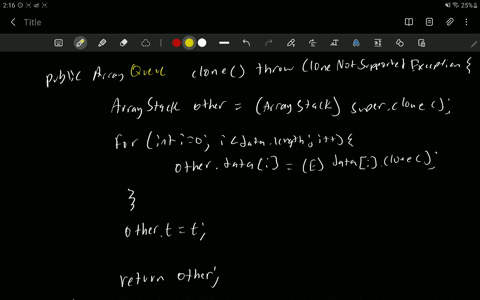 2:16
25%
Title
public Array Queue clone() throw CloneNotSupportedException {
ArrayStack other = (ArrayStack) super.clone();
for (int i=0; i<data.length; i++) {
other.data[i] = (E) data[i].clone();
}
other.t = t;
return other;